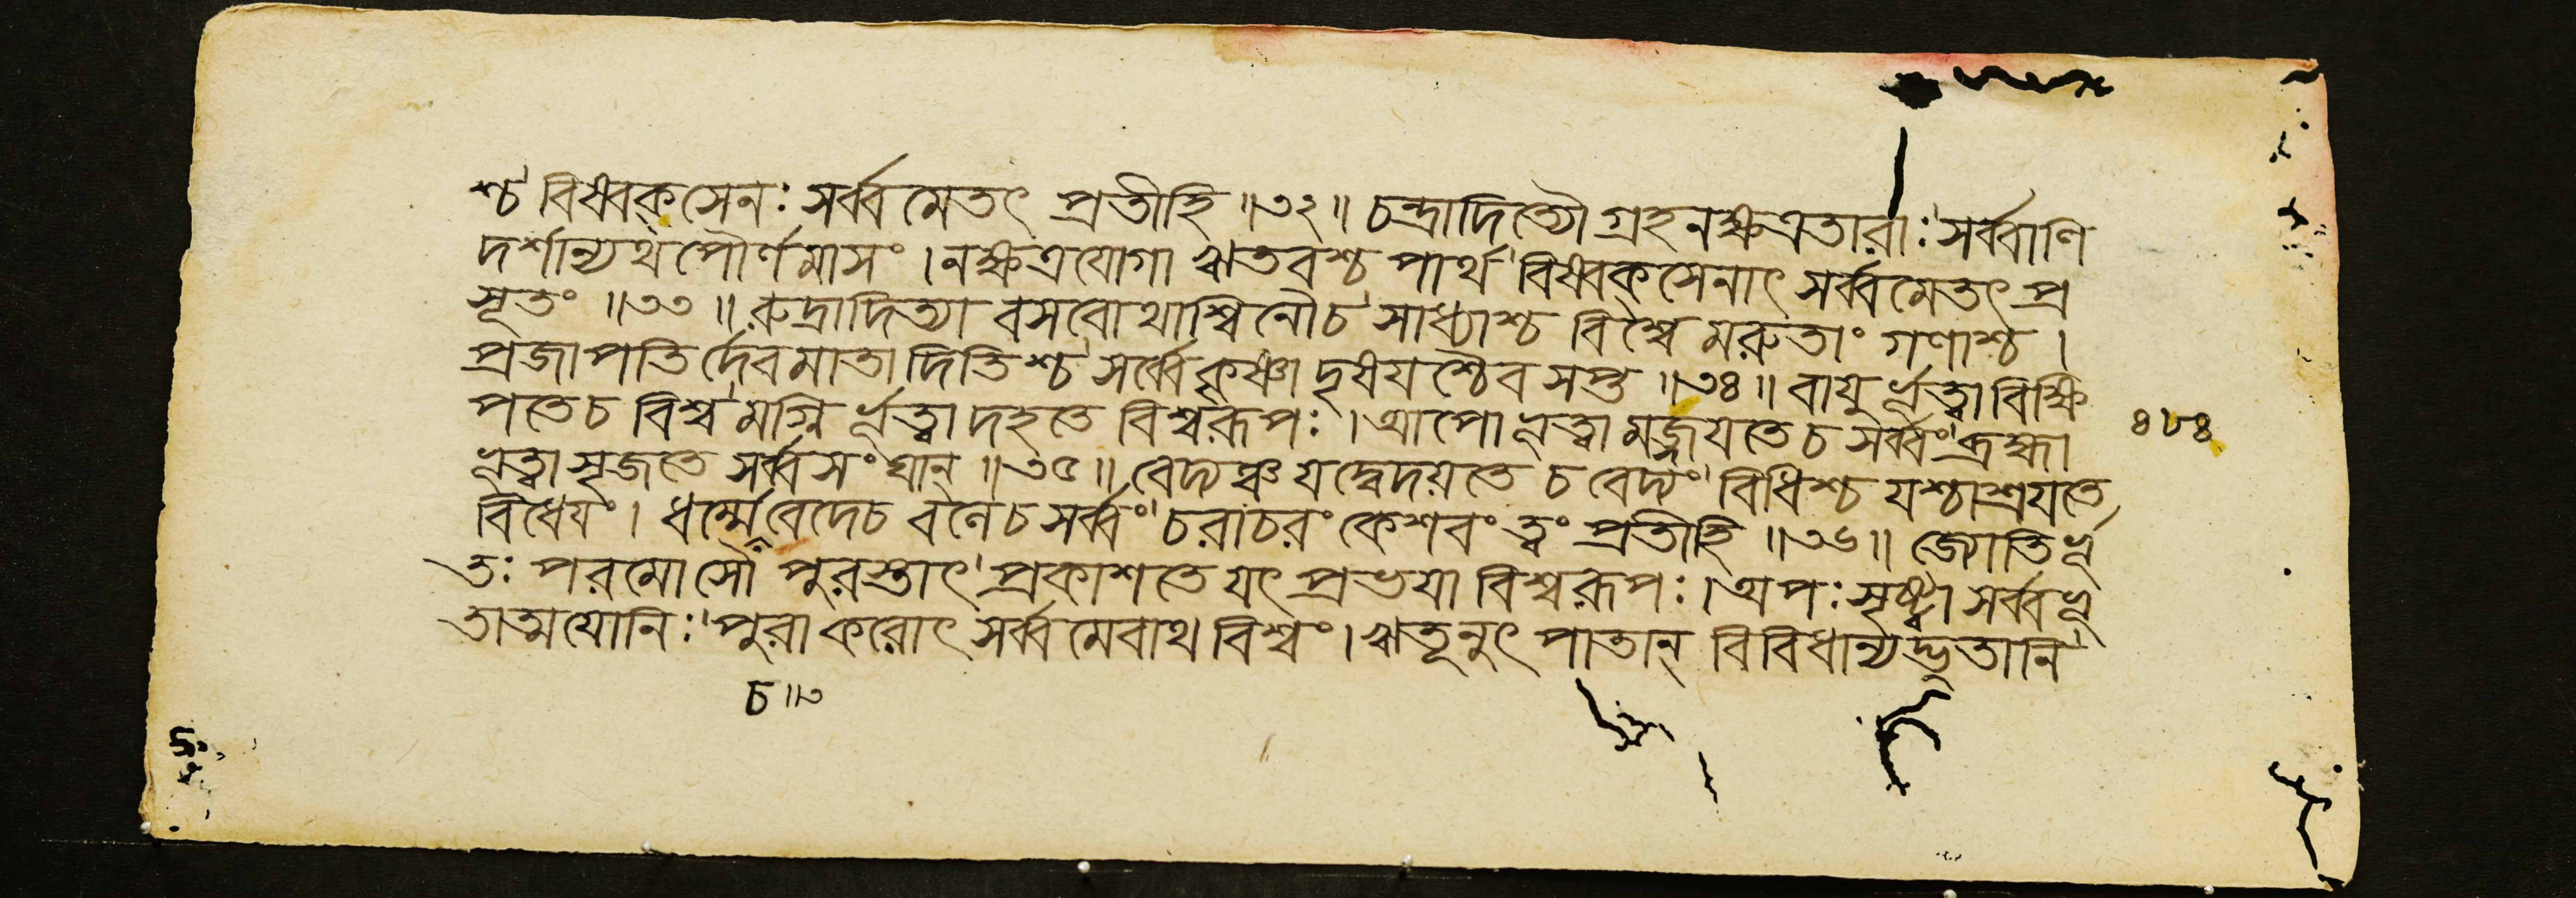 শ্চ বিষ্বক্সেনঃ সর্ব্বমেতৎ প্রতীহি ॥৩২॥ চন্দ্রাদিত্যৌ গ্রহনক্ষত্রতারাঃ' সর্ব্বাণি
দর্শান্যথ পৌর্ণমাসং । নক্ষত্রযোগা ঋতবশ্চ পার্থ' বিষ্বক্সেনাৎ সর্ব্বমেতৎ প্র
সূতং ॥৩৩॥ রুদ্রাদিত্যা বসবোথাশ্বিনৌচ' সাধ্যাশ্চ বিশ্বে মরুতাং গণাশ্চ ।
প্রজাপতির্দেবমাতা দিতিশ্চ' সর্ব্বে কৃষ্ণাদৃষযশ্চৈব সপ্ত ॥৩৪॥ বাযুর্ভূত্বা বিক্ষি
পতে চ বিশ্ব' মগ্নির্ভূত্বা দহতে বিশ্বরূপঃ । আপো ভূত্বা মজ্জযতে চ সর্ব্বং' ব্রহ্মা
ভূত্বা সৃজতে সর্ব্বসংঘান্ ॥৩৫॥ বেদ্যঞ্চ যদ্বেদয়তে চ বেদ্যং' বিধিশ্চ যশ্চাশ্রযতে
বিধেযং । ধর্ম্মে বেদেচ বনেচ সর্ব্বং' চরাচরং কেশবং ত্বং প্রতীহি ॥৩৬॥ জ্যোতির্ভূ
তঃ পরমোসৌ পুরস্তাৎ' প্রকাশতে যৎ প্রভযা বিশ্বরূপঃ । অপঃ সৃষ্ট্বা সর্ব্বভূ
তাত্মযোনিঃ' পুরাকরোৎ সর্ব্বমেবাথ বিশ্বং । ঋতূনুৎপাতান্ বিবিধান্যদ্ভুতানি'
চ ॥৩
৪৮৪